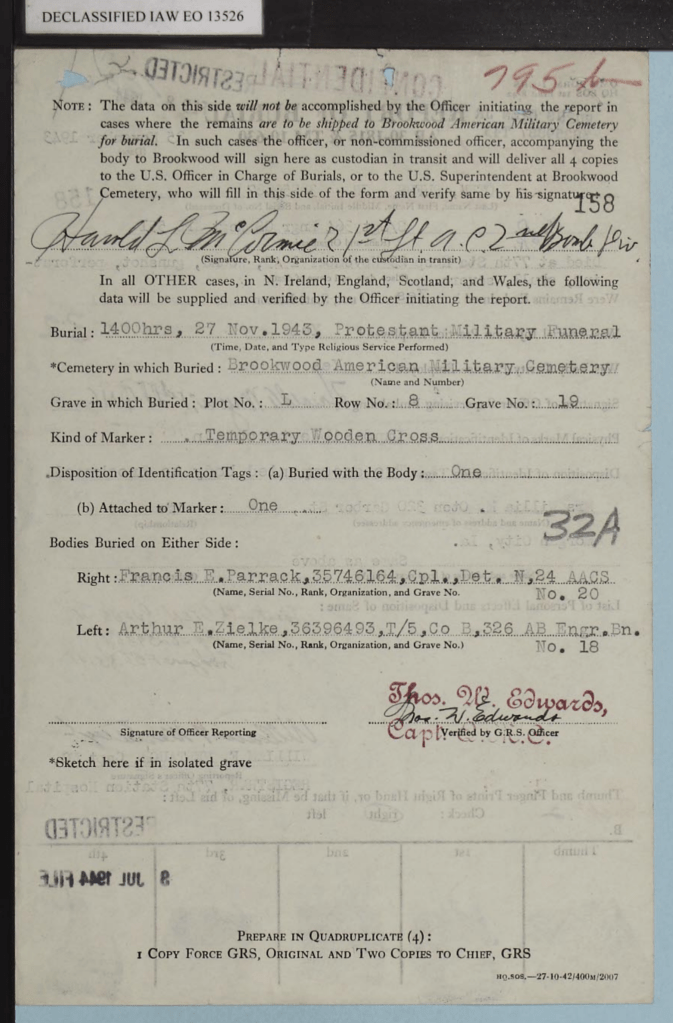 DECLASSIFIED IAW EO 13526
RESTRICTED
CONFIDENTIAL
795
NOTE: The data on this side will not be accomplished by the Officer initiating the report in
cases where the remains are to be shipped to Brookwood American Military Cemetery
for burial. In such cases the officer, or non-commissioned officer, accompanying the
body to Brookwood will sign here as custodian in transit and will deliver all 4 copies
to the U.S. Officer in Charge of Burials, or to the U.S. Superintendent at Brookwood
Cemetery, who will fill in this side of the form and verify same by his signature.
158
Harold L. McCormic 1st Lt A.C. 2nd Bomb Div.
(Signature, Rank, Organization of the custodian in transit)
In all OTHER cases, in N. Ireland, England, Scotland, and Wales, the following
data will be supplied and verified by the Officer initiating the report.
Burial: 1400hrs, 27 Nov.1943, Protestant Military Funeral
(Time, Date, and Type Religious Service Performed)
*Cemetery in which Buried: Brookwood American Military Cemetery
(Name and Number)
Grave in which Buried: Plot No.: L Row No.: 8 Grave No.: 19
Kind of Marker: Temporary Wooden Cross
Disposition of Identification Tags: (a) Buried with the Body: One
(b) Attached to Marker: One
32A
Bodies Buried on Either Side:
Right: Francis E.Parrack,35746164,Cpl.,Det. N,24 AACS
(Name, Serial No., Rank, Organization, and Grave No. No. 20
Left: Arthur E.Zielke,36396493,T/5,Co B,326 AB Engr.Bn.
(Name, Serial No., Rank, Organization, and Grave No.) No. 18
Thos. W. Edwards,
Thos. W. Edwards
Capt.
Signature of Officer Reporting Verified by G.R.S. Officer
*Sketch here if in isolated grave
Thumb and Finger Prints of Right Hand or, if that be Missing, of his Left:
Check: (right) left
RESTRICTED
B.
Thumb 1st 2nd 3rd 4th
8 JUL 1944 FILE
PREPARE IN QUADRUPLICATE (4):
1 COPY FORCE GRS, ORIGINAL AND TWO COPIES TO CHIEF, GRS
HQ.SOS.—27-10-42/400M/2007